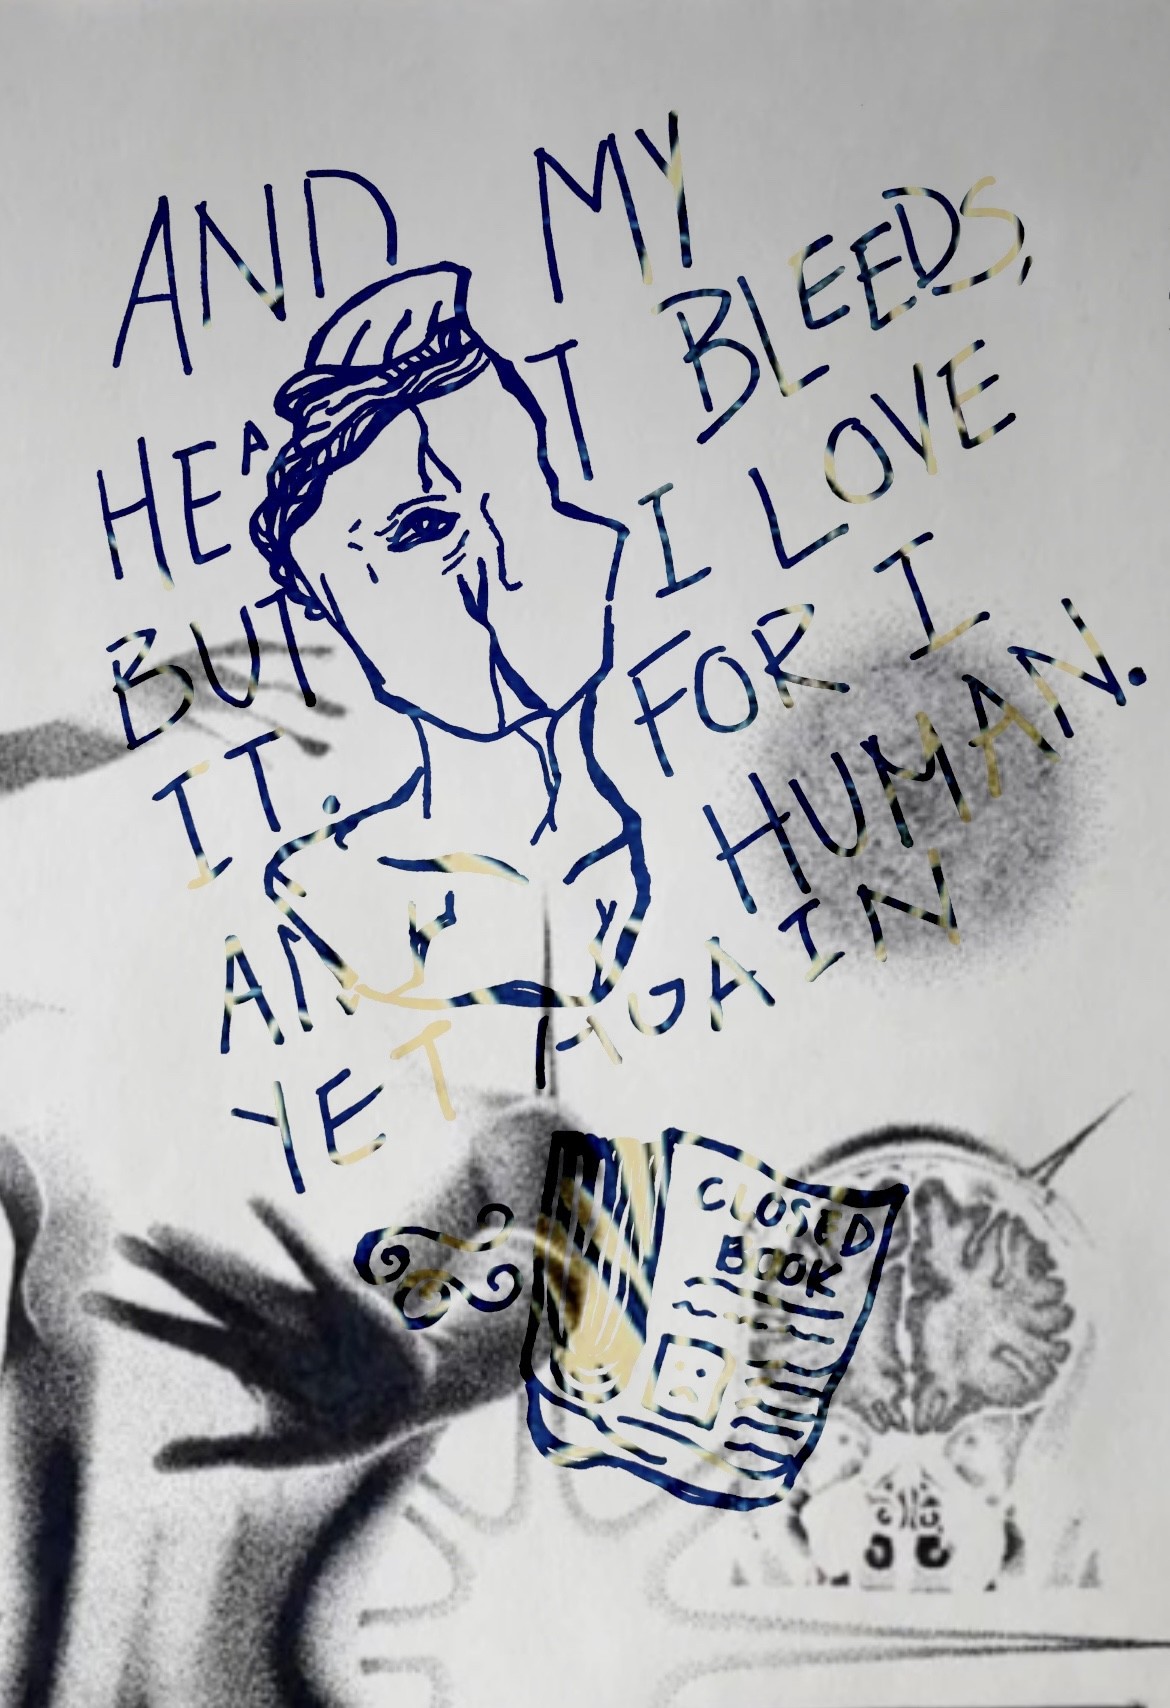 AND MY
HEART BLEEDS,
BUT I LOVE
IT. FOR I
AM HUMAN.
YET AGAIN
CLOSED
BOOK